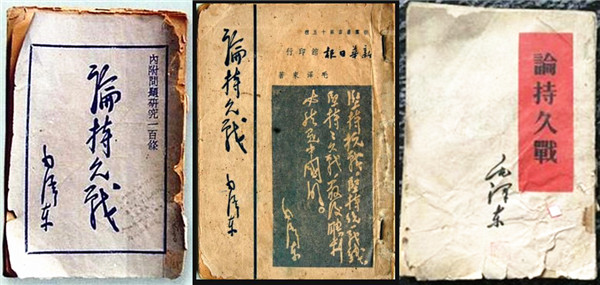 內附問題研究一百條
論持久戰
毛澤東
新華日報館印行
毛澤東著
論持久戰
毛澤東
堅持抗戰堅持統一戰線
堅持持久戰最後勝利
必然是中國的。
毛澤東
論持久戰
毛澤東